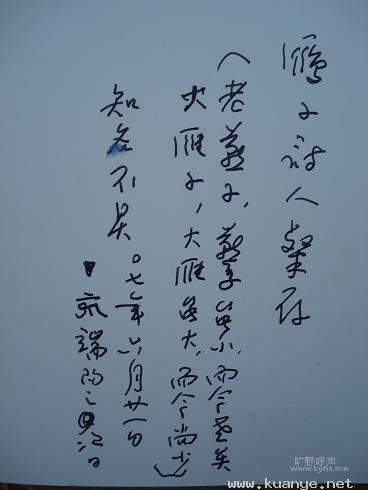 雁子诗人粲存
(老燕子,燕字虽小,而今老矣
大雁子,大雁虽大,而今尚少)
知名不具。
〇七年六月廿一日
端阳之
旷野呼声
www.kyhs.me
www.kuanye.net